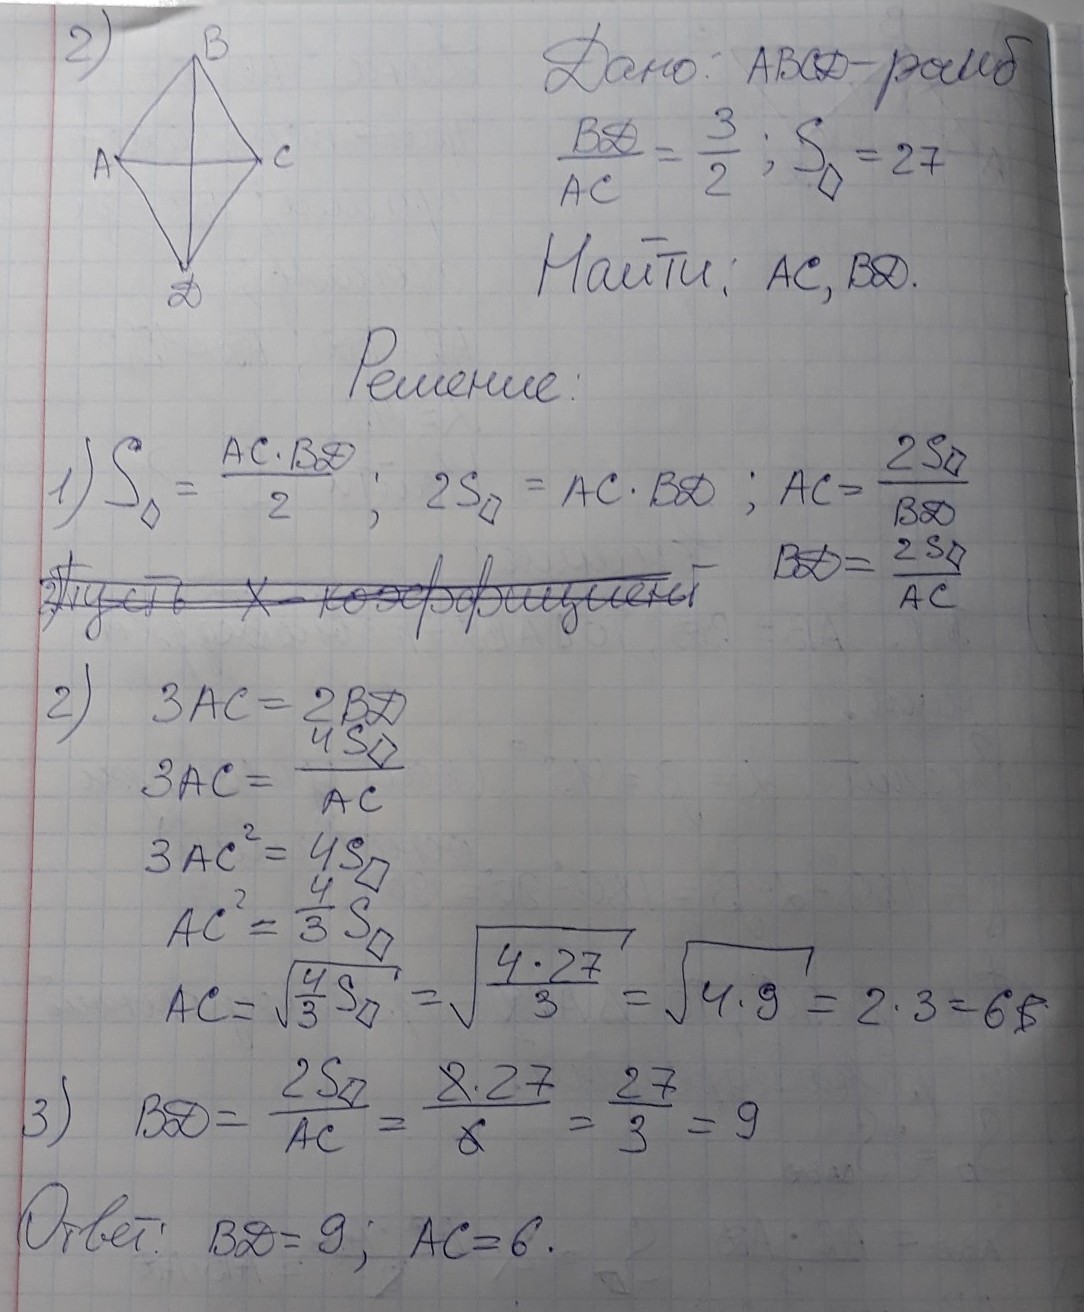 2)
B
A
C
D
Дано: ABCD-ромб
BD/AC = 3/2 ; S◊ = 27
Найти: AC, BD.
Решение:
1) S◊ = AC·BD/2 ; 2S◊ = AC·BD ; AC = 2S◊/BD
BD = 2S◊/AC
2) Пусть x - коэффициент
2) 3AC = 2BD
3AC = 4S◊/AC
3AC² = 4S◊
AC² = 4/3 S◊
AC = √(4/3 S◊) = √(4·27/3) = √(4·9) = 2·3 = 6
3) BD = 2S◊/AC = 2·27/6 = 27/3 = 9
Ответ: BD = 9; AC = 6.